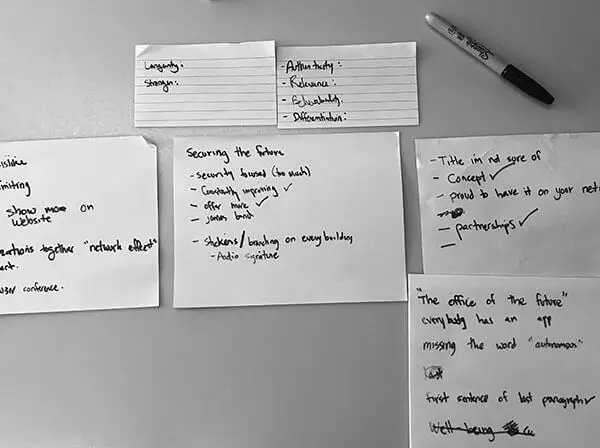 Longevity:
Stronger:
- Authenticity:
- Relevance:
- Believability:
- Differentiation:
Sharpie
show more on
website
together "network effect"
conference.
Securing the future
- security focused (too much)
- Constantly improving ✓
- offer more ✓
- james bond
- stickers/branding on every building
- Audio signature
- Title im not sure of
- Concept ✓
- proud to have it on your
- partnerships ✓
"The office of the future"
everybody has an app
missing the word "autonomous"
first sentence of last paragraph ✓
Well-being